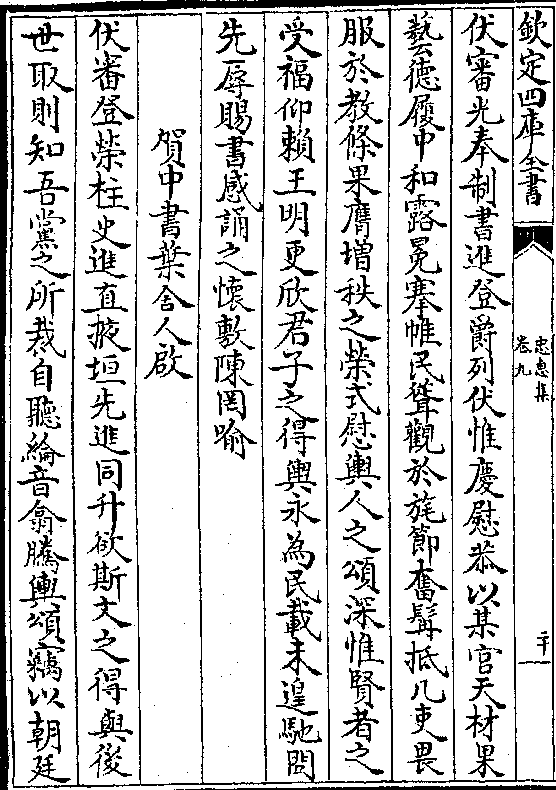 欽定四庫全書
忠惠集
卷九
二十
伏審光奉制書進登爵列伏惟慶慰恭以某官天材果
藝德履中和露冕搴帷民聳觀於旄節奮髯抵几吏畏
服於教條果膺增秩之榮式慰輿人之頌深惟賢者之
受福仰賴王明更欣君子之得輿永為民載未遑馳問
先辱賜書感誦之懷敷陳罔喻
賀中書葉舍人啟
伏審登榮柱史進直掖垣先進同升欲斯文之得與後
世取則知吾黨之所裁自聽綸音翕騰輿頌竊以朝廷